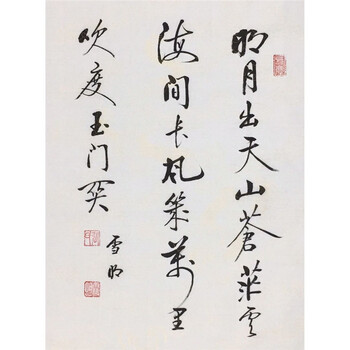 明月出天山苍茫雲
海间长风几万里
吹度玉门关
雪明